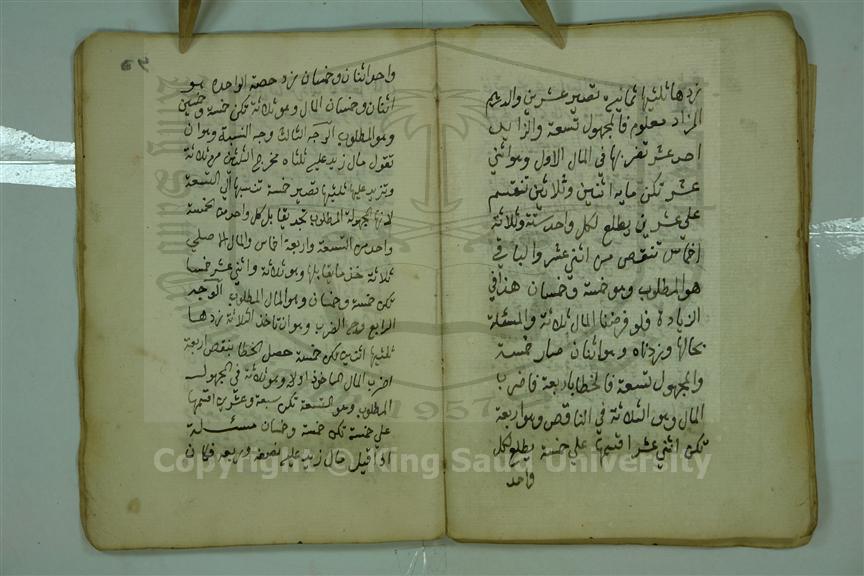 نزدها ثلثيها ثمانيه تصير عشرين والدرهم
المزاد معلوم فالمجهول تسعة والزايد
احد عشر تضربها في المال الاول وهو اثني
عشر تكن مايه اثنين وثلاثين تنقسم
علي عشرين يطلع لكل واحد ستة وثلاثة
اخماس تنقص من اثني عشر والباقي
هو المطلوب وهو خمسة وخمسان هذا في
الزيادة فلو فرضنا المال ثلاثة والمسئلة
بحالها وزدناه وهو اثنان صار خمسة
والمجهول تسعة فالخطا باربعة فاضرب
المال وهو الثلاثة في الناقص وهو اربعة
تكن اثني عشر اقسمها علي خمسة يطلع لكل
واحد
واحد اثنان وخمسان نزد حصة الواحده هو
اثنان وخمسان المال وهو ثلاثة تكن خمسة وخمسين
وهو المطلوب الوجه الثالث وجه النسبة وهو ان
تقول مال زيد عليه ثلثاه مخرج الثلثين من ثلاثة
وتزيد عليها ثلثيها تصير خمسة تنسبها الي التسعة
لانها المجهولة المطلوب تجد يقابل كل واحد من الخمسة
واحد من التسعة واربعة اخماس والمال الاصلي
ثلاثة خذ ما يقابلها وهو ثلاثة واثني عشر خمسا
تكن خمسة وخمسان وهو المال المطلوب الوجه
الرابع وجه الضرب وهو ان تاخذ الثلاثة نزدها
ثلثيها اثنين تكن خمسة حصل الخطا بنقص اربعة
اضرب المال الماخوذ اولا وهو ثلاثة في المجهول
المطلوب وهو التسعة تكن سبعة وعشرين اقسمها
علي خمسة تكن خمسة وخمسان مسئلة
اذا قيل مال زيد عليه نصفه وربعه فكان
Copyright © King Saud University
1957